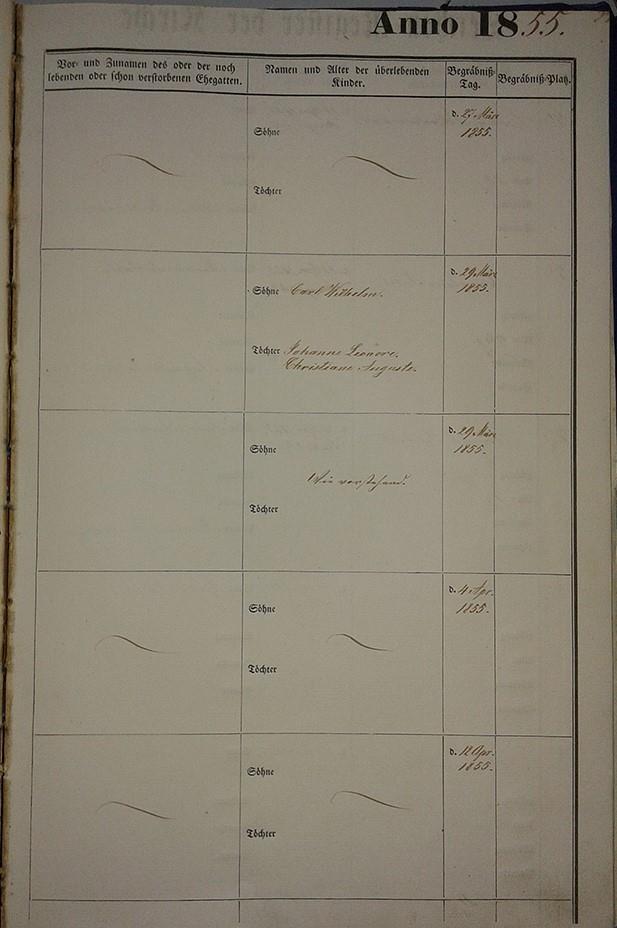 Anno 1855.
Vor- und Zunamen des oder der noch
lebenden oder schon verstorbenen Ehegatten.
Namen und Alter der überlebenden
Kinder.
Begräbniß-
Tag.
Begräbniß-Platz.
d. 27 März
1855.
Söhne
Töchter
d. 29 März
1855.
Söhne Carl Wilhelm.
Töchter Johanne Leonore.
Christiane Auguste.
d. 29 März
1855.
Söhne
Wie vorstehend.
Töchter
d. 4 Apr.
1855.
Söhne
Töchter
d. 12 Apr.
1855.
Söhne
Töchter